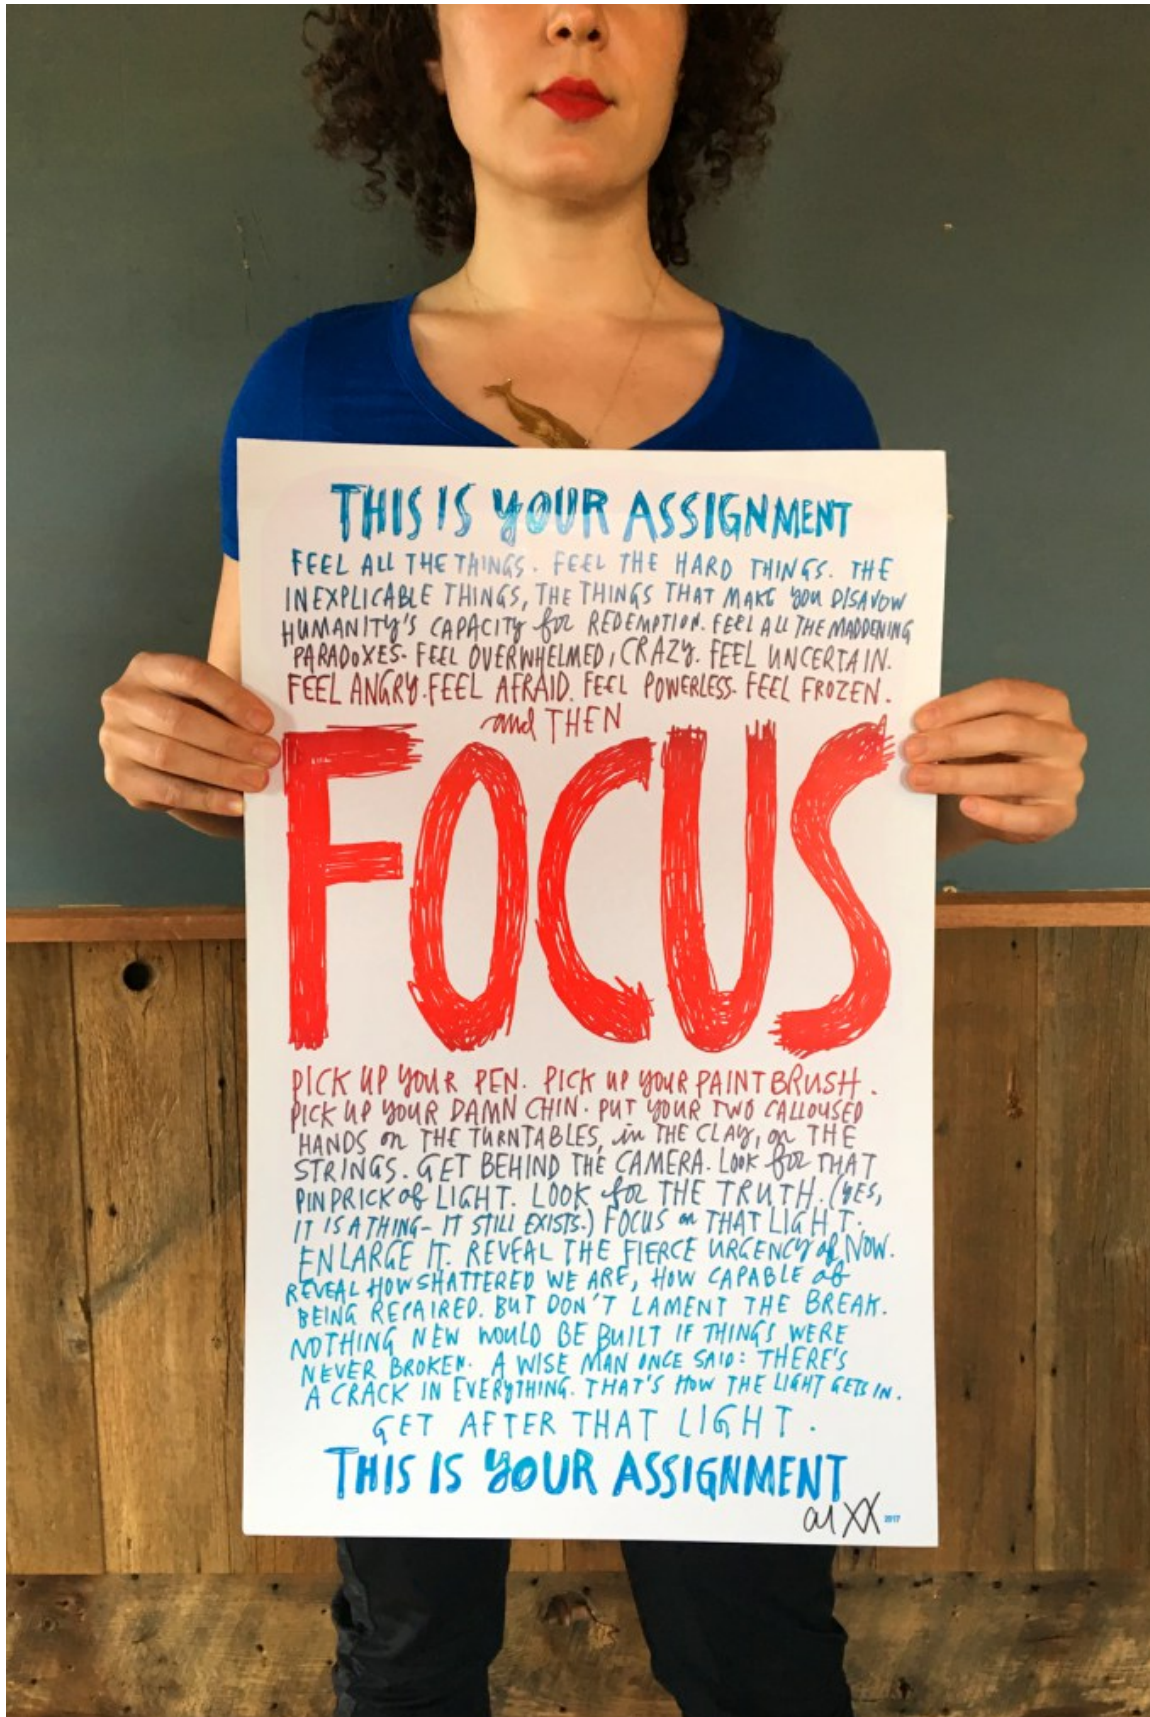 THIS IS YOUR ASSIGNMENT
FEEL ALL THE THINGS. FEEL THE HARD THINGS. THE
INEXPLICABLE THINGS, THE THINGS THAT MAKE YOU DISAVOW
HUMANITY'S CAPACITY for REDEMPTION. FEEL ALL THE MADDENING
PARADOXES. FEEL OVERWHELMED, CRAZY. FEEL UNCERTAIN.
FEEL ANGRY. FEEL AFRAID. FEEL POWERLESS. FEEL FROZEN.
and THEN
FOCUS
PICK UP YOUR PEN. PICK UP YOUR PAINTBRUSH.
PICK UP YOUR DAMN CHIN. PUT YOUR TWO CALLOUSED
HANDS on THE TURNTABLES, in THE CLAY, on THE
STRINGS. GET BEHIND THE CAMERA. LOOK for THAT
PINPRICK of LIGHT. LOOK for THE TRUTH. (YES,
IT IS A THING- IT STILL EXISTS.) FOCUS on THAT LIGHT.
ENLARGE IT. REVEAL THE FIERCE URGENCY of NOW.
REVEAL HOW SHATTERED WE ARE, HOW CAPABLE of
BEING REPAIRED. BUT DON'T LAMENT THE BREAK.
NOTHING NEW WOULD BE BUILT IF THINGS WERE
NEVER BROKEN. A WISE MAN ONCE SAID: THERE'S
A CRACK IN EVERYTHING. THAT'S HOW THE LIGHT GETS IN.
GET AFTER THAT LIGHT.
THIS IS YOUR ASSIGNMENT
2017